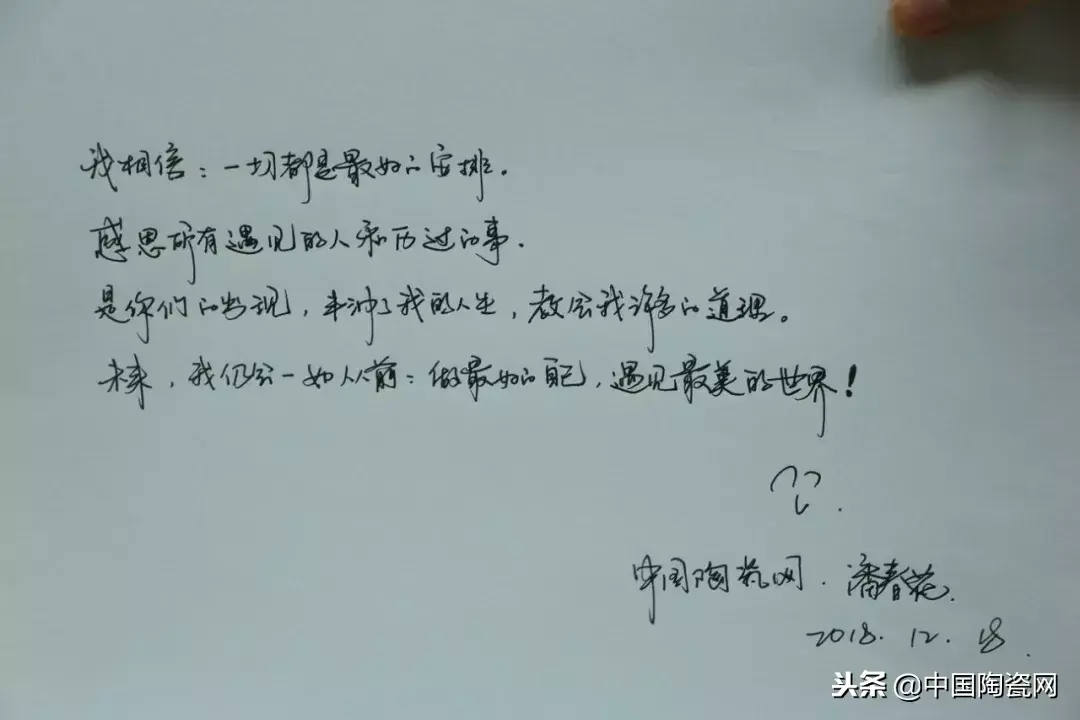 我相信：一切都是最好的安排。
感恩所有遇见的人和历过的事.
是你们的出现，丰沛了我的人生，教会我许多的道理。
未来，我仍会一如从前：做最好的自己，遇见最美的世界！
中国陶瓷网. 潘春花.
2018. 12. 18.
头条 @中国陶瓷网